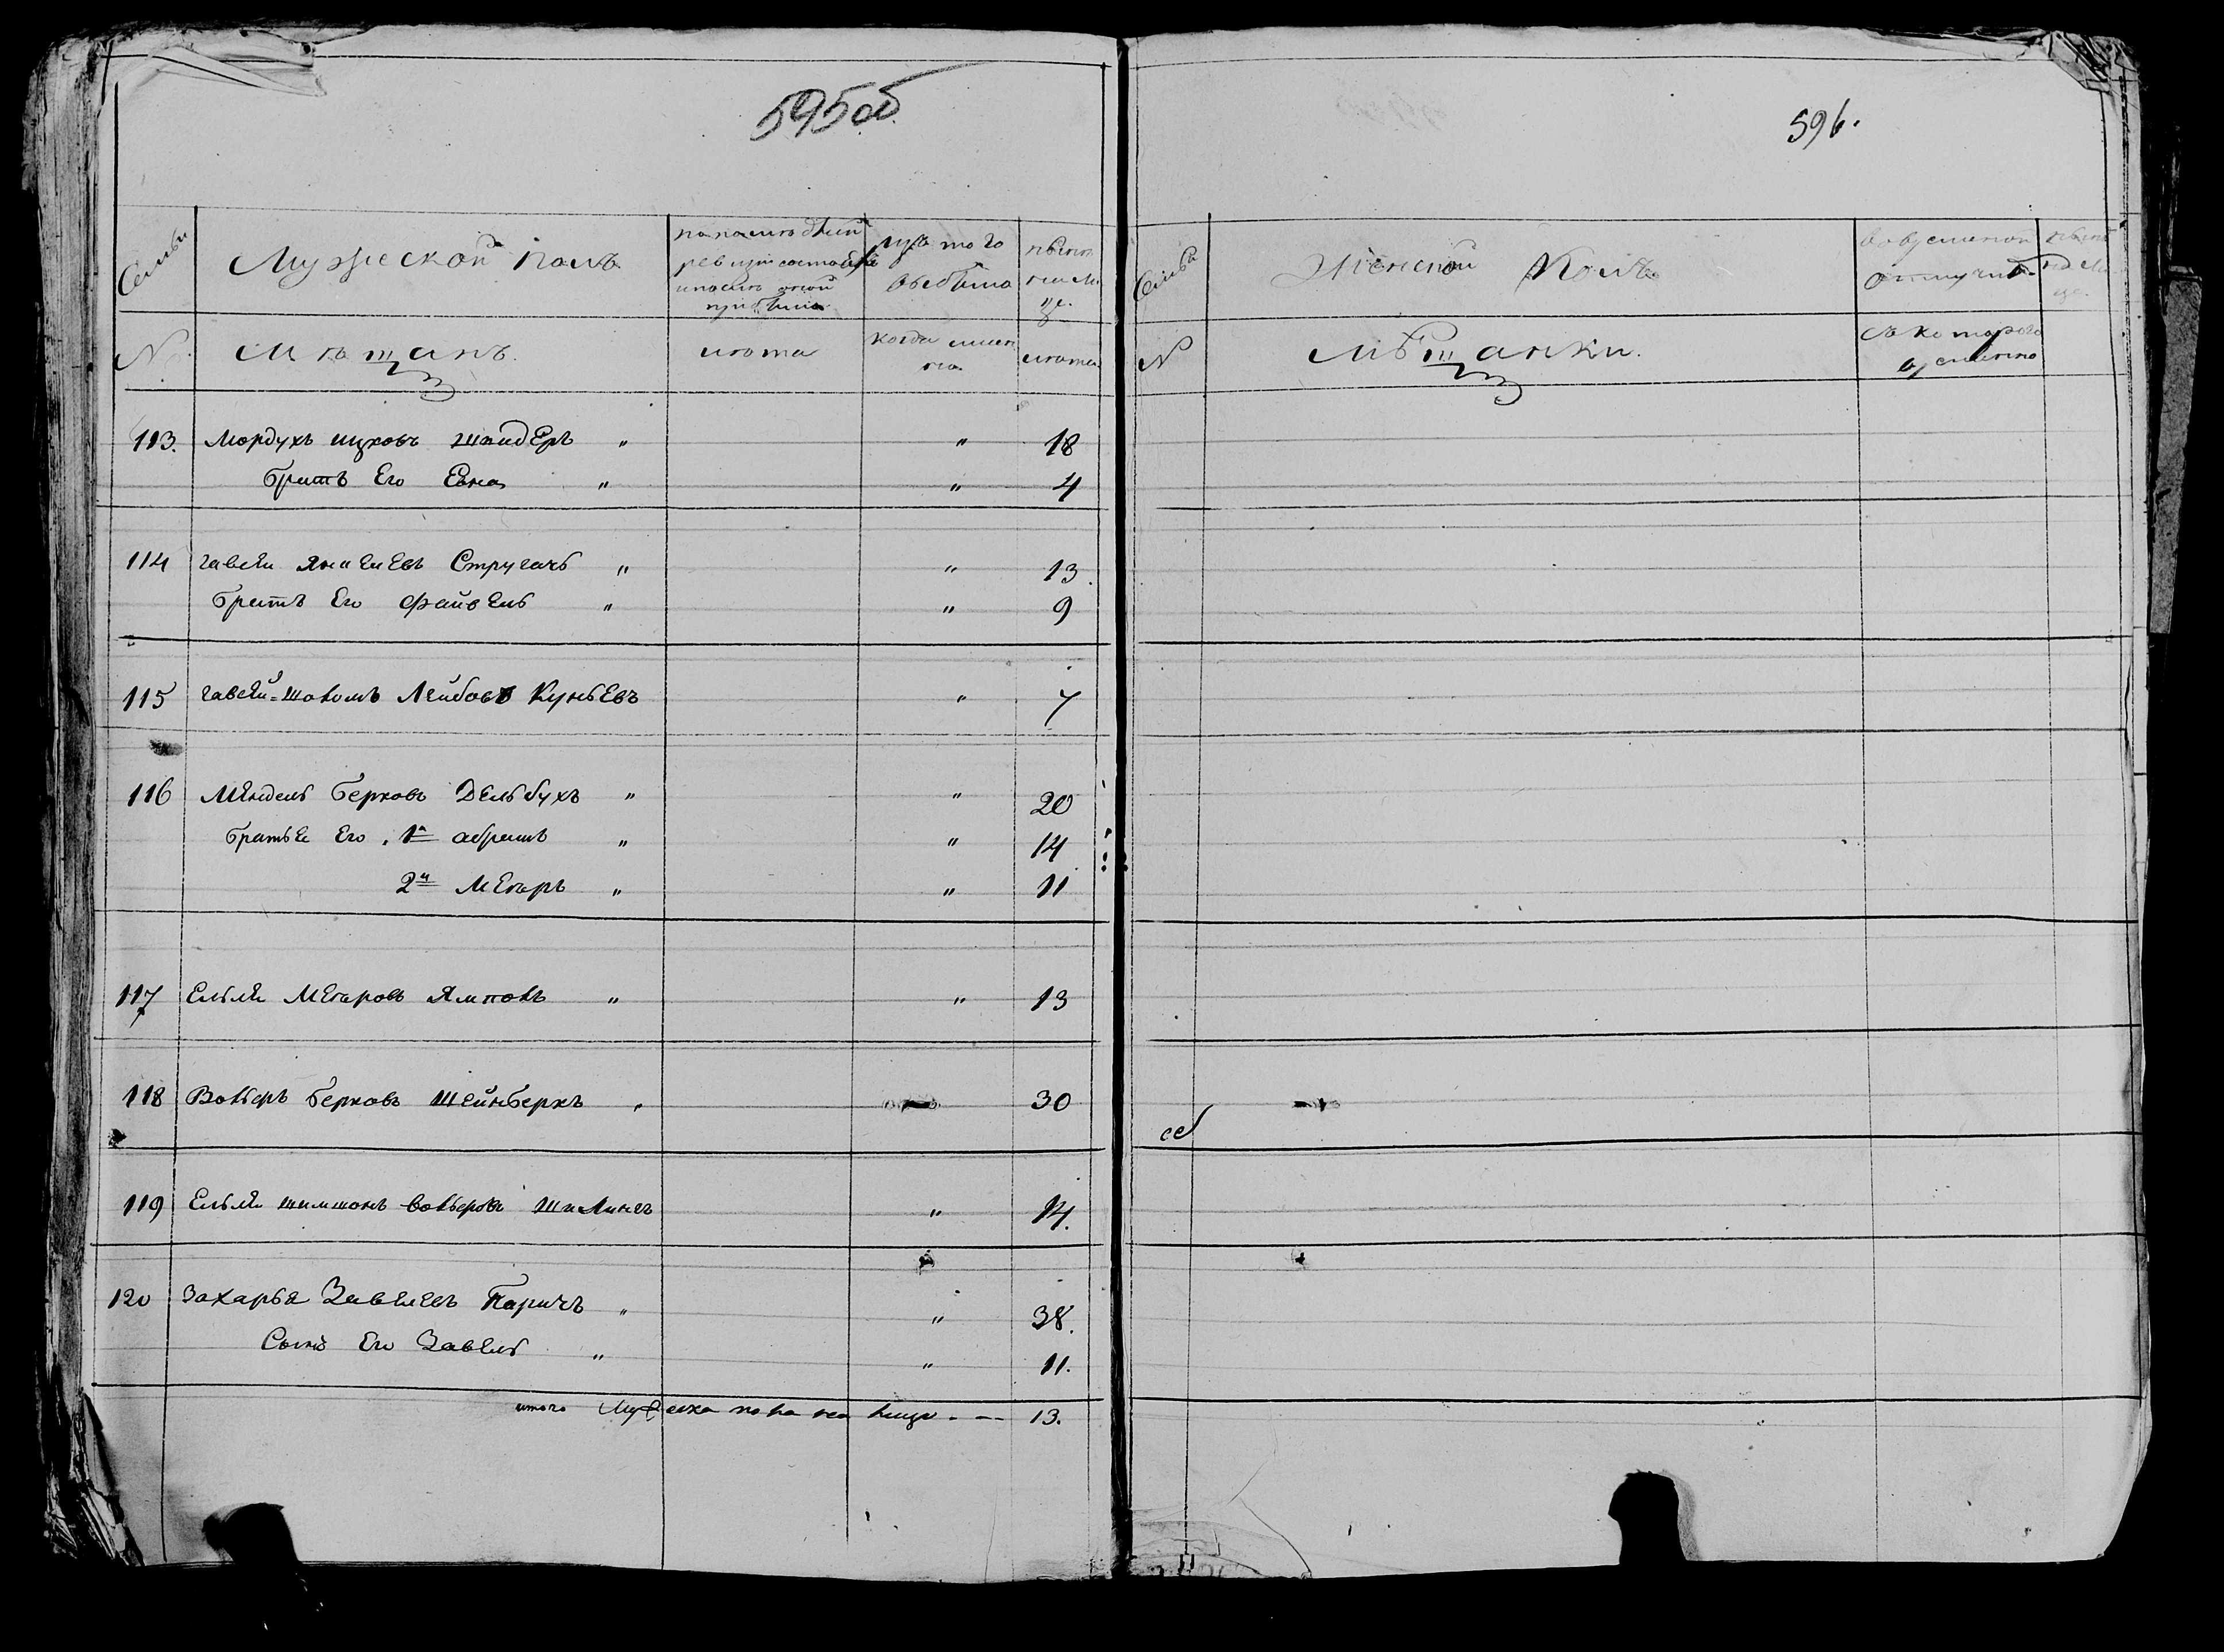 595об
Семьи
Мужеской полъ
по последней ревизии состояло и после оной прибыло
изъ того выбыло
ныне на лице
№
Мещанъ.
лета
когда именно
лета
113. Мордухъ ицковъ шнайдеръ " " 18
братъ Его Евна " " 4
114 гавсей Янкелевъ Стругачъ " " 13.
братъ Его файвель " " 9
115 гавсей-шоломъ Лейбовъ Куньевъ " 7
116 Мендель берковъ Дельбухъ " " 20
братье Его 1й абрамъ " " 14
2й Мееръ " " 11
117 Ельля Мееровъ Ямпольъ " " 13
118 Вольфъ берковъ Шейнберкъ " 30
119 Ельля шимшонъ вольфовъ Шилингъ " 14.
120 Захарья Завелевъ Паричъ " " 38.
Сынъ Его Завель " " 11.
итого Мужеска пола на лицо - - - 13.
596.
Семьи
Женской Полъ
во временной отлучке
ныне на лице.
№
мѣщанки.
съ которого времени